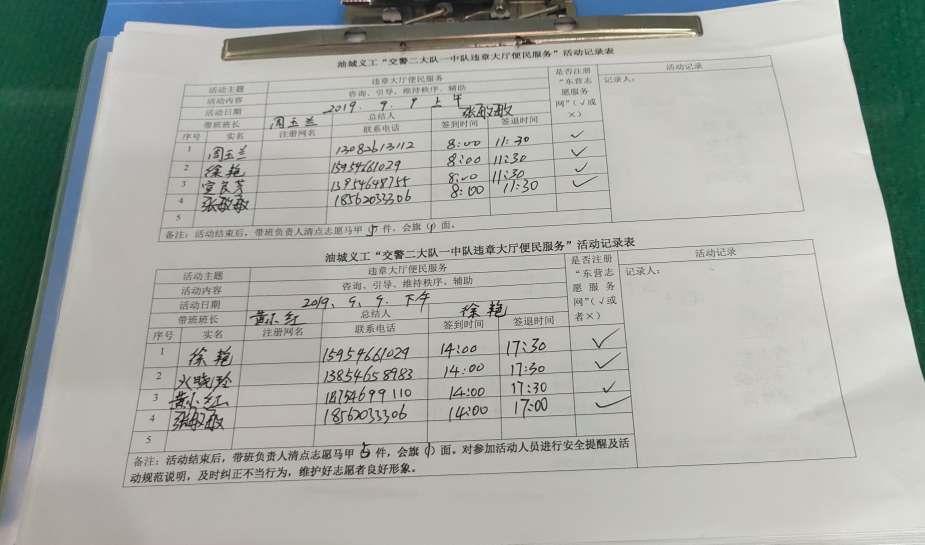 油城义工“交警二大队一中队违章大厅便民服务”活动记录表
活动主题 违章大厅便民服务 是否注册“东营志愿服务网”(√或×) 活动记录
活动内容 咨询、引导、维持秩序、辅助 记录人：
活动日期 2019. 9. 9 上午
带班班长 周玉兰 总结人 张敏敏
序号 实名 注册网名 联系电话 签到时间 签退时间
1 周玉兰 13082613112 8:00 11:30 ✓
2 徐艳 15954661029 8:00 11:30 ✓
3 13954648755 8:00 11:30 ✓
4 张敏敏 18562033306 8:00 11:30 ✓
5
备注：活动结束后，带班负责人清点志愿马甲（5）件，会旗（1）面。
油城义工“交警二大队一中队违章大厅便民服务”活动记录表
活动主题 违章大厅便民服务 是否注册“东营志愿服务网”(√或者×) 活动记录
活动内容 咨询、引导、维持秩序、辅助 记录人：
活动日期 2019. 9. 9. 下午
带班班长 黄小红 总结人 徐艳
序号 实名 注册网名 联系电话 签到时间 签退时间
1 徐艳 15954661029 14:00 17:30 ✓
2 火晓玲 13854658983 14:00 17:30 ✓
3 黄小红 18754699110 14:00 17:30 ✓
4 张敏敏 18562033306 14:00 17:00 ✓
5
备注：活动结束后，带班负责人清点志愿马甲（5）件，会旗（1）面。对参加活动人员进行安全提醒及活
动规范说明，及时纠正不当行为，维护好志愿者良好形象。